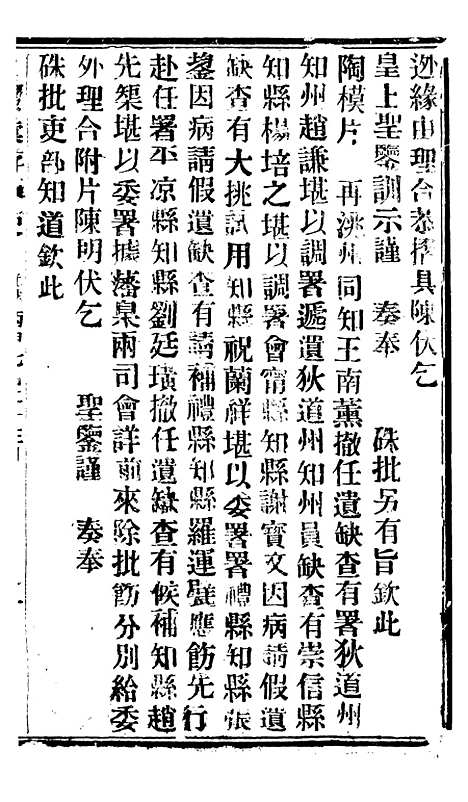 迩緣由理合恭摺具陳伏乞
皇上聖鑒訓示謹　奏奉　硃批另有旨欽此
陶模片　再洮州同知王南薰撤任遺缺查有署狄道州
知州趙謙堪以調署遞遺狄道州知州員缺查有崇信縣
知縣楊培之堪以調署會甯縣知縣謝寶文因病請假遺
缺查有大挑試用知縣祝蘭祥堪以委署署禮縣知縣張
鋆因病請假遺缺查有請補禮縣知縣羅運甓應飭先行
赴任署平凉縣知縣劉廷璜撤任遺缺查有候補知縣趙
先榘堪以委署據藩臬兩司會詳前來除批飭分別給委
外理合附片陳明伏乞　聖鑒謹　奏奉
硃批吏部知道欽此